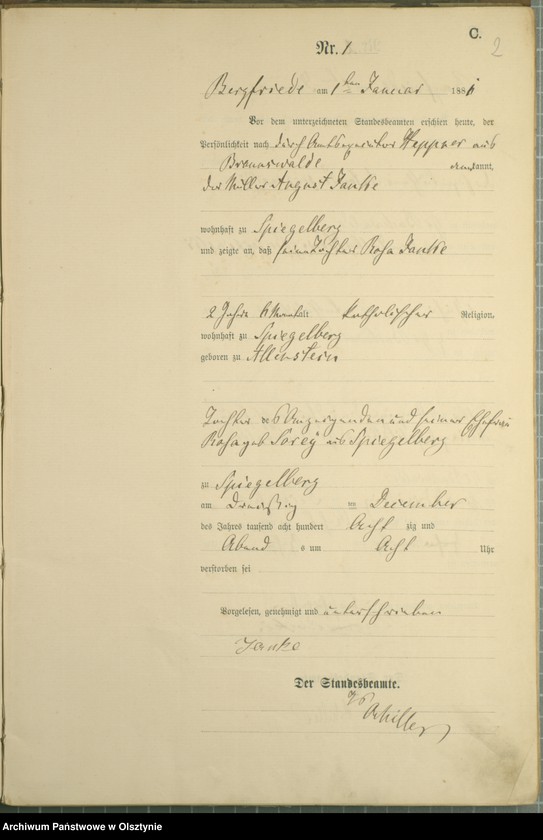 C.
2
Nr. 1
Bergfriede am 1ten Januar 1881
Vor dem unterzeichneten Standesbeamten erschien heute, der
Persönlichkeit nach durch Amtsexecutor Heppner aus
Braunswalde kannt,
der Müller August Janke
wohnhaft zu Spiegelberg
und zeigte an, daß seine Tochter Rosa Janke
2 Jahre 6 Monat alt katholischer Religion,
wohnhaft zu Spiegelberg
geboren zu Allenstein
Tochter des Anzeigenden und seiner Ehefrau
Rosa geb aus Spiegelberg
zu Spiegelberg
am Dreißig ten December
des Jahres tausend acht hundert Acht zig und
Abend s um Acht Uhr
verstorben sei
Vorgelesen, genehmigt und unterschrieben
Janke
Der Standesbeamte.
Archiwum Państwowe w Olsztynie